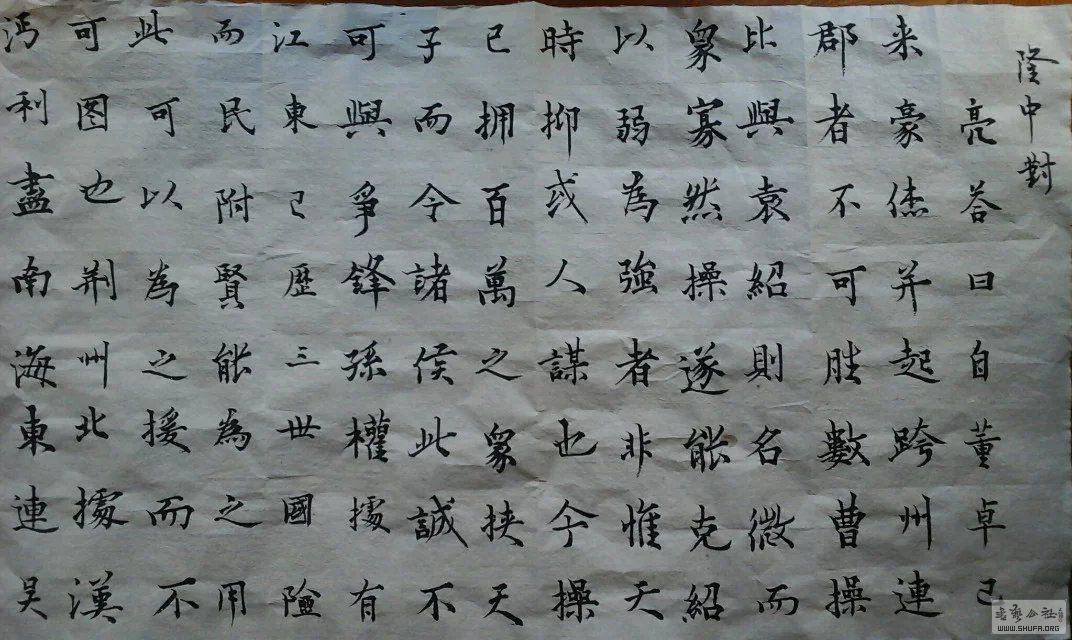 隆中對
亮荅曰自董卓已
来豪傑并起跨州連
郡者不可胜數曹操
比與袁紹則名微而
衆寡然操遂能克紹
以弱為強者非惟天
時抑或人謀也今操
已拥百萬之衆挟天
子而令諸侯此誠不
可與爭鋒孫權據有
江東已歷三世國險
而民附賢能為之用
此可以為之援而不
可图也荆州北據漢
沔利盡南海東連吴
WWW.SHUFA.ORG